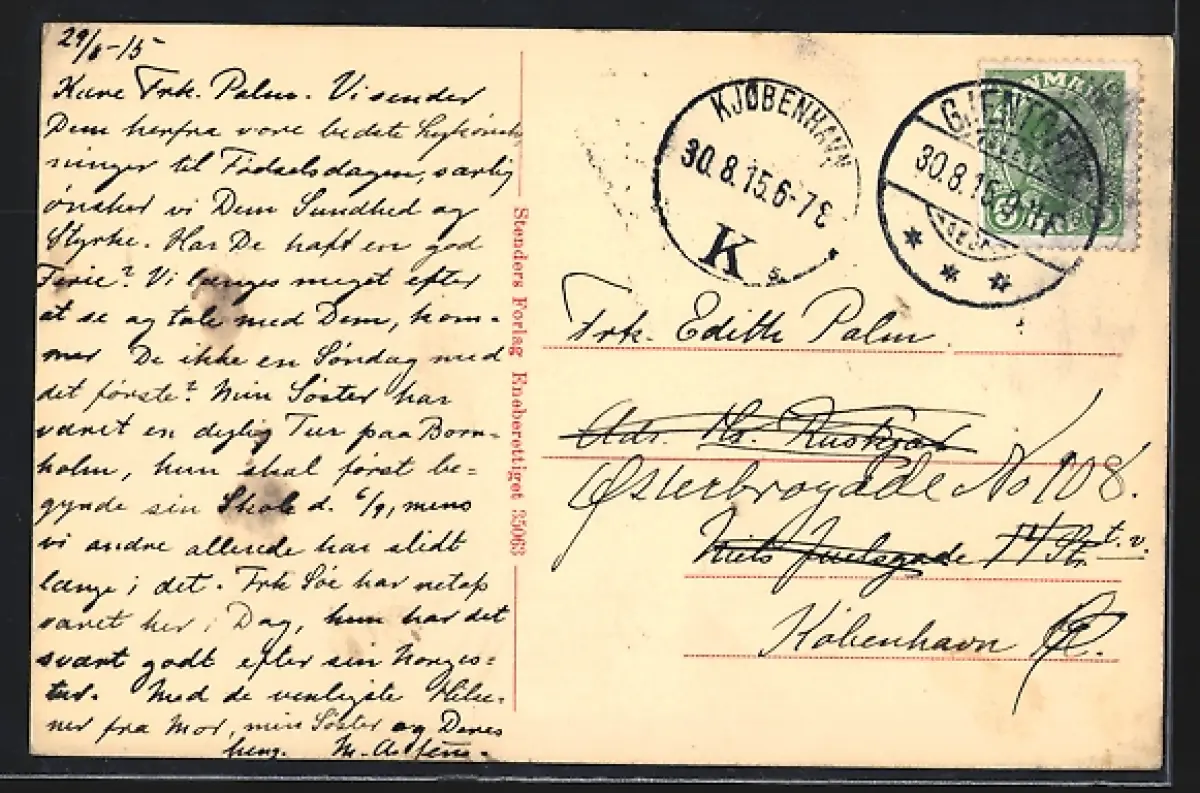 29/8-15
Kære Frk. Palm. Vi sender
Dem herfra vore bedste Lykønsk-
ninger til Fødselsdagen, særlig
ønsker vi Dem Sundhed og
Styrke. Har De haft en god
Ferie? Vi længes meget efter
at se og tale med Dem, kom-
mer De ikke en Søndag med
det første? Min Søster har
været en dejlig Tur paa Born-
holm, hun skal først be=
gynde sin Skole d. 6/9, mens
vi andre allerede har slidt
længe i det. Frk Søe har netop
været her i Dag, hun har det
svært godt efter sin Norges=
tur. Med de venligste Hils-
ner fra Mor, min Søster og Deres
heng. M.
Stenders Forlag Eneberettiget 35063
KJØBENHAVN
30.8.15.6-7E
K
GJENTOFTE
30.8.15
DANMARK
5
Frk. Edith Palm
Adr. Hr.
Østerbrogade No 108.
Niels Juelsgade
t.v.
København Ø.